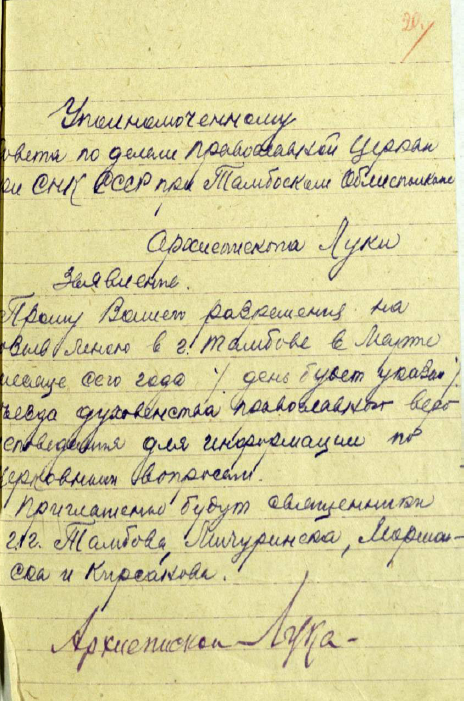 20.
Уполномоченному
овета по делам Православной Церкви
ри СНК СССР при Тамбоском Облисполкоме
Архиепископа Луки
Заявление.
Прошу Вашего разрешения на
созыв мною в г. Тамбове в Марте
месяце сего года / день будет указан /
ъезда духовенства православного веро
споведания для информации по
церковным вопросам.
Приглашены будут священники
г.г. Тамбова, Мичуринска, Моршан-
ска и Кирсанова.
Архиепископ Лука